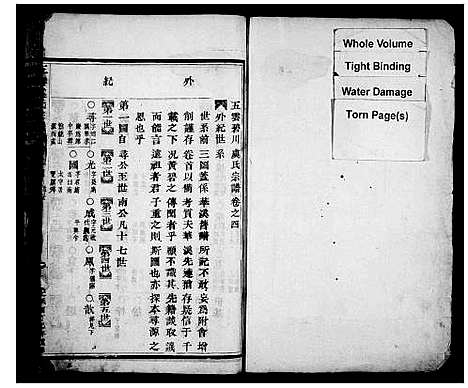 外紀
五雲碧川虞氏宗譜卷之四
外紀世系
世系前三圖蓋係華溪舊譜所記不敢妄為附會增
削謹存卷首以備考質天華溪先達猶存疑信于千
載之下况黃碧之傳聞者乎顧不識其先籍談取譏
而能言遠祖者君子重之則斯圖也亦探本尋源外
思也乎
第一圖自尋公至世南公凡十七世
第一世
第二世
第三世
第四世
第五世
○尋
○光
○成
○鳳
○歆
○國
Whole Volume
Tight Binding
Water Damage
Torn Page(s)